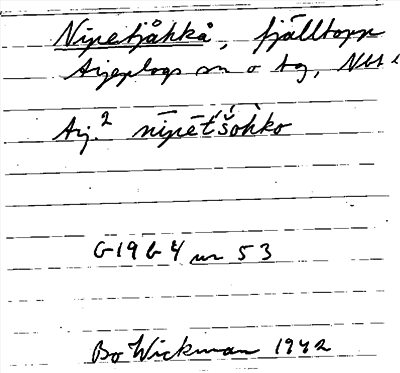 Nipetjåhkå, fjälltopp
Arjeplogs sn o tg, Nbt l
Arj.² nīpēt́šòhko
G 19 b 4 nr 53
Bo Wickman 1942